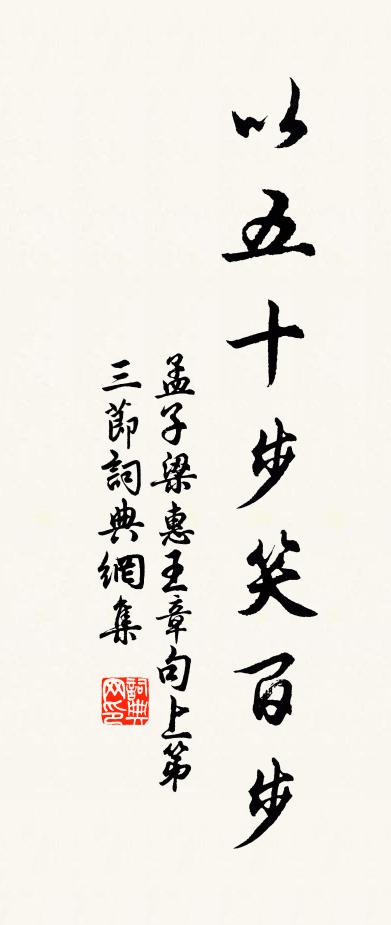 以五十步笑百步
孟子梁惠王章句上第
三節詞典網集
詞典
网印